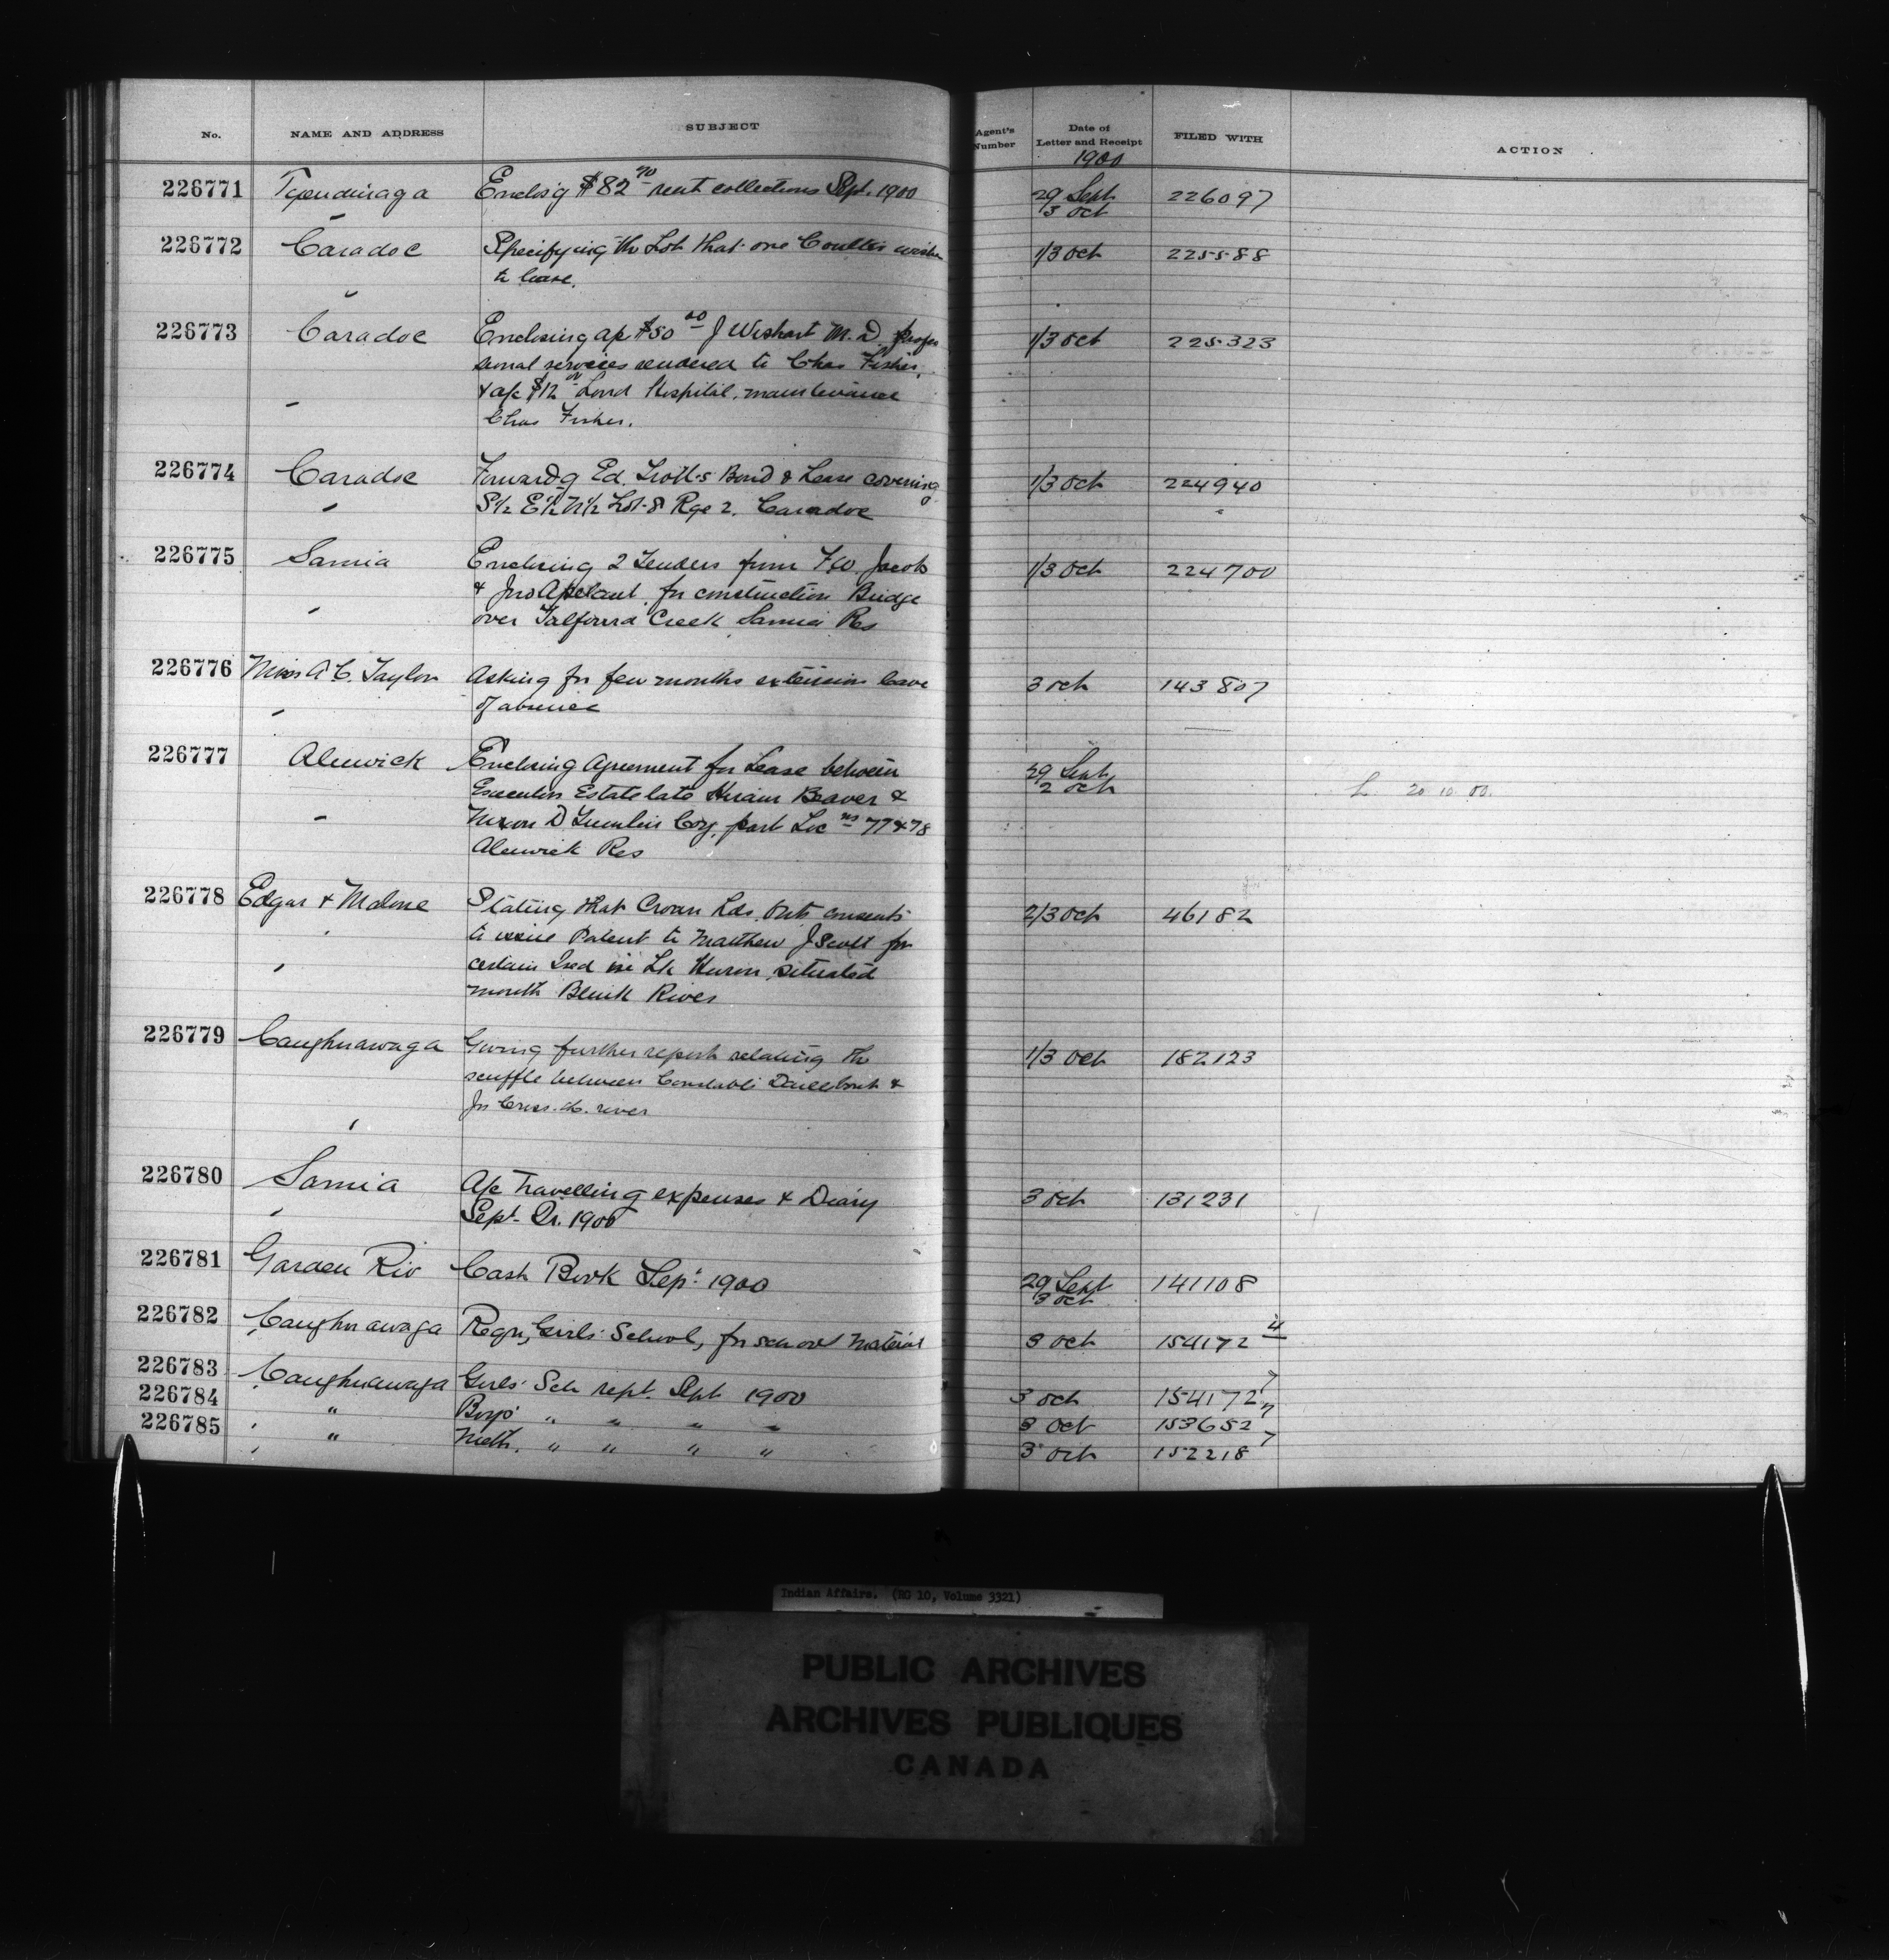 No. NAME AND ADDRESS SUBJECT Agent's Number Date of Letter and Receipt FILED WITH ACTION
1900
226771 Tyendinaga Enclos'g $82 70 rent collections Sept. 1900 29 Sept 226097
3 Oct
226772 Caradoc Specifying the Lot that one Coulter wishes 1/3 Oct 225588
to lease.
226773 Caradoc Enclosing a/c $50 00 J Wishart M.D. profes 1/3 Oct 225323
sional services rendered to Chas Fisher,
& a/c $12 Lond Hospital, maintenance
Chas Fisher.
226774 Caradoc Forward'g Ed. Bond & Lease covering 1/3 Oct 224940
S½ E½ N½ Lot 8 Rge 2. Caradoc
226775 Sarnia Enclosing 2 Tenders from F.W. Jacob 1/3 Oct 224700
& Jno for construction Bridge
over Talfourd Creek Sarnia Res
226776 Miss A C. Taylor Asking for few months extension leave 3 Oct 143807
of absence
226777 Alnwick Enclosing Agreement for Lease between 29 Sept
Executors Estate late Hiram Beaver & 2 Oct 20 10 00.
Nixon D Coy, part Loc ns 77 & 78
Alnwick Res
226778 Edgar & Malone Stating that Crown Lds Ont. consents 2/3 Oct 46182
to issue Patent to Matthew J Scott for
certain Isd in Lk Huron situated
mouth Blind River
226779 Caughnawaga Giving further report relating the 1/3 Oct 182123
scuffle between Constable &
Jos river
226780 Sarnia A/c Travelling expenses & Diary 3 Oct 131231
Sept. Qr. 1900
226781 Garden Riv Cash Book Sept 1900 29 Sept 141108
3 Oct
226782 Caughnawaga Reqn, Girls' School, for school material 3 Oct 154172 4
226783 Caughnawaga Girls' Sch rept. Sept 1900 3 Oct 154172 7
226784 " Boys' " " " " 3 Oct 153652 7
226785 " Meth. " " " " 3 Oct 152218 7
Indian Affairs. (RG 10, Volume 3321)
PUBLIC ARCHIVES
ARCHIVES PUBLIQUES
CANADA